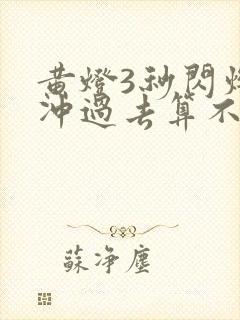 黄燈3秒閃爍
沖過去算不
蘇淨塵